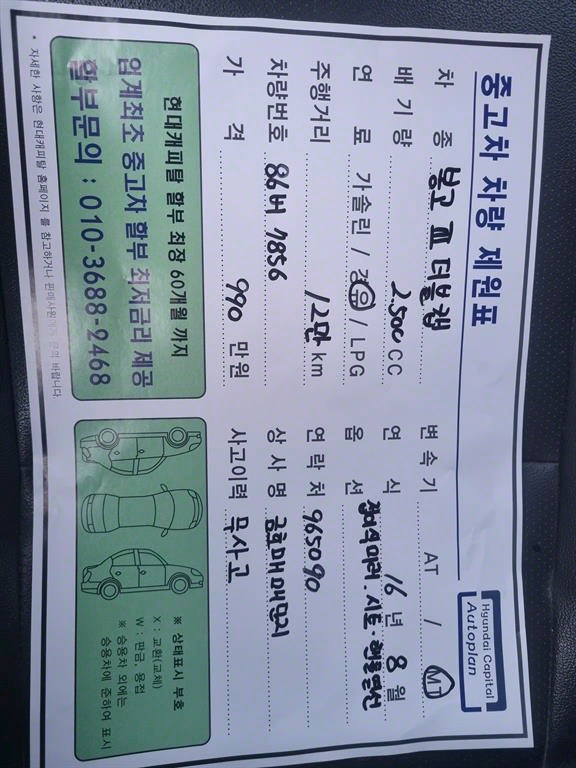 중고차 차량 제원표
Hyundai Capital
Autoplan
차 종 봉고 Ⅲ 더블캡
변속기 AT / MT
배기량 2,500 CC
연 식 16 년 8 월
연 료 가솔린 / 경유 / LPG
옵 션
주행거리 12만 km
연락처 965090
차량번호 86버 7856
상사명 금호매매단지
가 격 990 만원
사고이력 무사고
현대캐피탈 할부 최장 60개월 까지
업계최초 중고차 할부 최저금리 제공
할부문의 : 010-3688-2468
※ 상태표시 부호
X : 교환(교체)
W : 판금, 용접
※ 승용차 외에는
승용차에 준하여 표시
* 자세한 사항은 현대캐피탈 홈페이지 를 참고하거나 판매사원에게 문의 바랍니다.